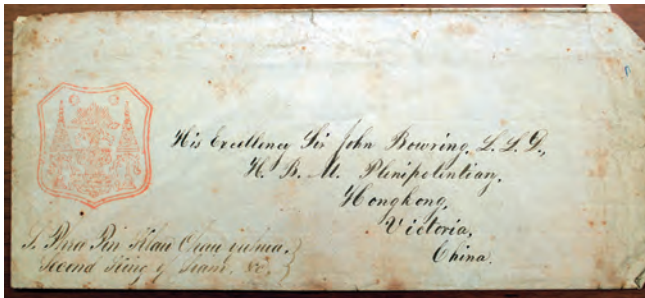 His Excellency Sir John Bowring, L. L. D.,
H. B. M. Plenipotentiary,
Hongkong,
Victoria,
China.
S. Phra Pin Klau Chau
Second King of Siam, &c.